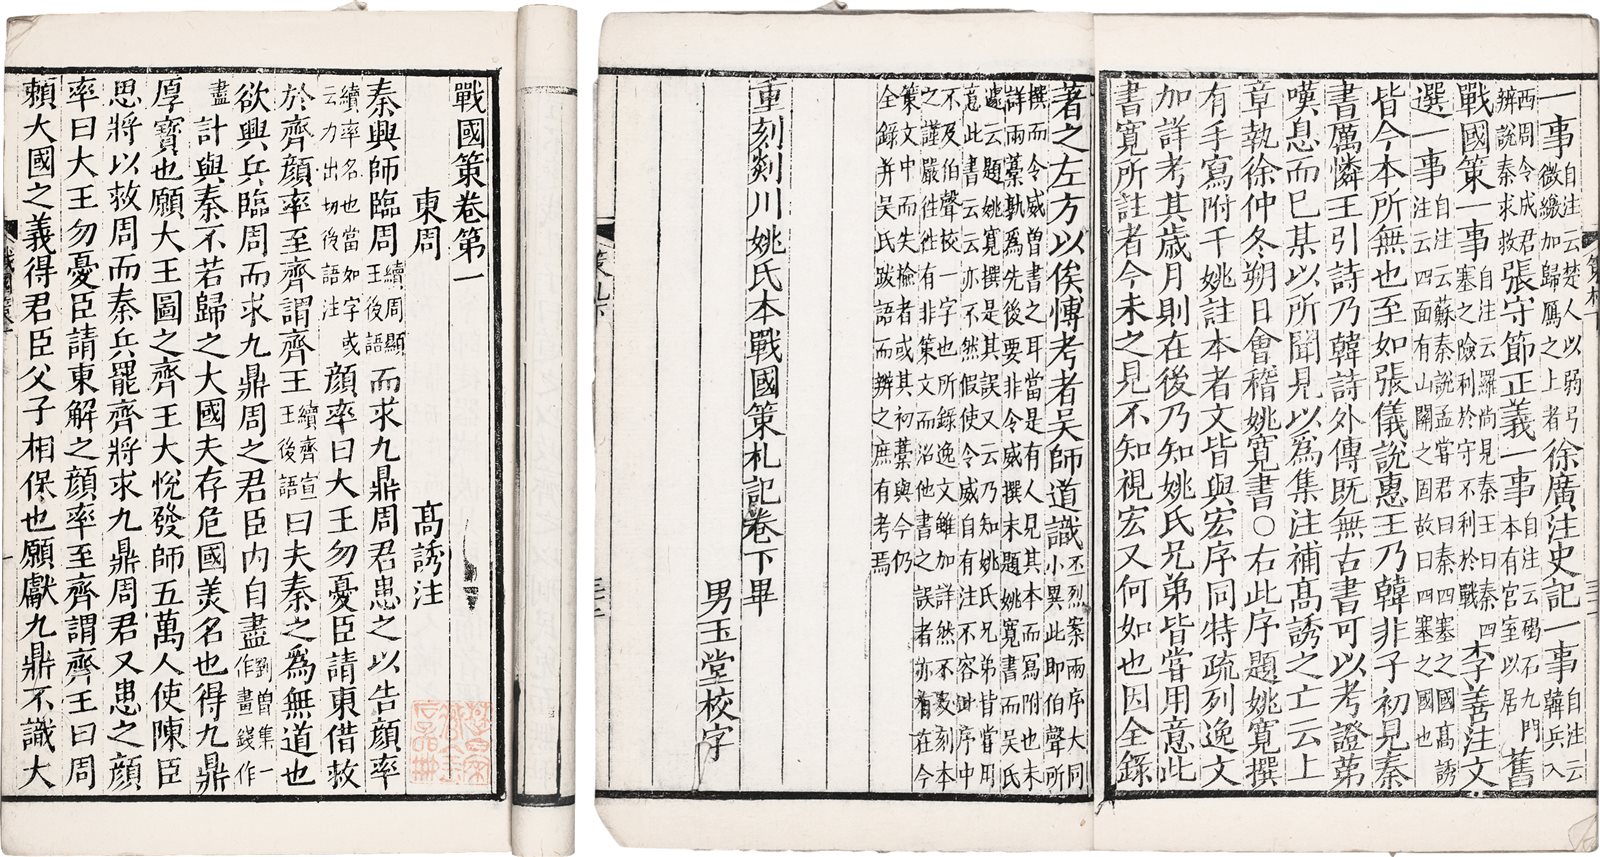 戰國策卷第一
東周　高誘注
秦興師臨周續周顯王後語而求九鼎周君患之以告顔率
續率名也當如字或云力出切後語注顔率曰大王勿憂臣請東借救
於齊顔率至齊謂齊王續齊宣王後語曰夫秦之爲無道也
欲興兵臨周而求九鼎周之君臣内自盡劉曽集一作畫錢作
盡計與秦不若歸之大國夫存危國美名也得九鼎
厚寶也願大王圖之齊王大悅發師五萬人使陳臣
思將以救周而秦兵罷齊將求九鼎周君又患之顔
率曰大王勿憂臣請東解之顔率至齊謂齊王曰周
賴大國之義得君臣父子相保也願獻九鼎不識大
戰國策
一事自注云楚人以弱弓微繳加歸鴈之上者徐廣注史記一事自注云韓兵入
西周令成君辨說秦求救張守節正義一事自注云碣石九門本有宮室以居舊
戰國策一事自注云羅尚見秦王曰秦四塞之險利於守不利於戰李善注文
選一事自注云蘇秦說孟嘗君曰秦四塞之國高誘注云四面有山關之固故曰四塞之國也
皆今本所無也至如張儀說惠王乃韓非子初見秦
書厲憐王引詩乃韓詩外傳既無古書可以考證第
嘆息而已某以所聞見以爲集注補高誘之亡云上
章執徐仲冬朔日會稽姚寬書○右此序題姚寬撰
有手寫附于姚註本者文皆與宏序同特疏列逸文
加詳考其歲月則在後乃知姚氏兄弟皆嘗用意此
書寬所註者今未之見不知視宏又何如也因全錄
著之左方以俟博考者吳師道識丕烈案兩序大同小異此即伯聲所
撰而令威曾書之耳當是有人見其本而寫附也末詳兩藁孰爲先後要非令威撰末題姚寬書而吳氏
遽云題姚寬撰是其誤又云乃知姚氏兄弟皆嘗用意此書云云亦不然假使令威自有注不容此序中
不及伯聲校一字也所錄逸文雖加詳然不爻刻本之謹嚴往往有非策文而沿他書之誤者亦有在今
策文中而失檢者或其初藁與今仍全錄并吳氏跋語而辨之庶有考焉
重刻剡川姚氏本戰國策札記卷下畢
男玉堂校字